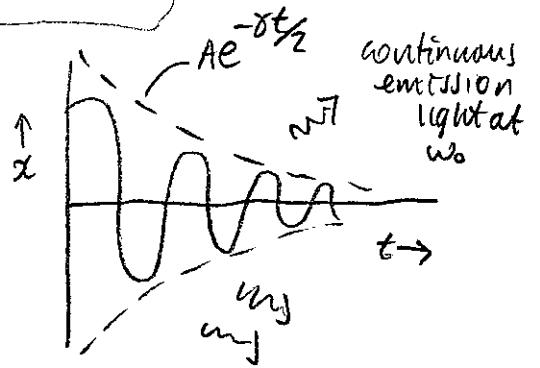 Ae^{-γt/2}
continuous
emission
light at
ω₀
↑
x
t→